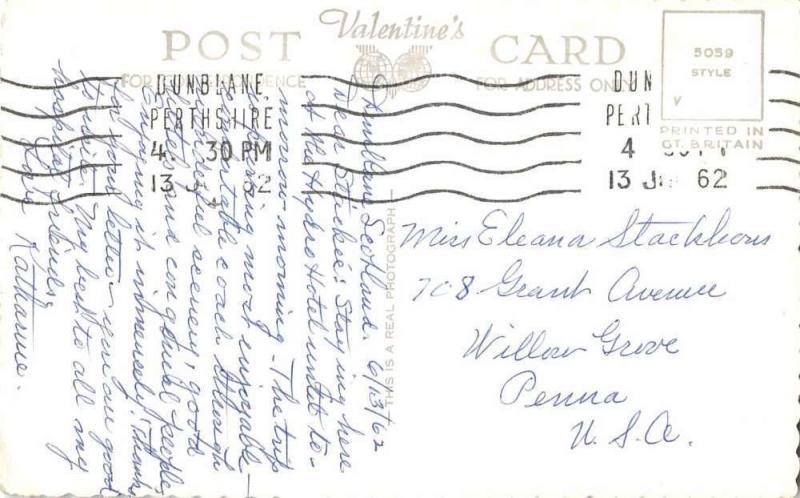 Valentine's
POST CARD
FOR CORRESPONDENCE
FOR ADDRESS ONLY
5059
STYLE
V
PRINTED IN
GT. BRITAIN
DUNBLANE
PERTHSHIRE
4. 30 PM
13 62
DUN
PERT
4
13 62
THIS IS A REAL PHOTOGRAPH
Dunblane Scotland. 6/13/62
Dear Stackie: Staying here
at the Hydro Hotel until to-
morrow morning. The trip
is proving most enjoyable -
comfortable coach through
beautiful scenery, good
hotels and congenial people,
Enjoying it immensely! Thanks
for your letter -
My best to all my
hospital friends,
Katharine.
Miss Eleana Stackhous
708 Grant Avenue
Willow Grove
Penna
U.S.A.